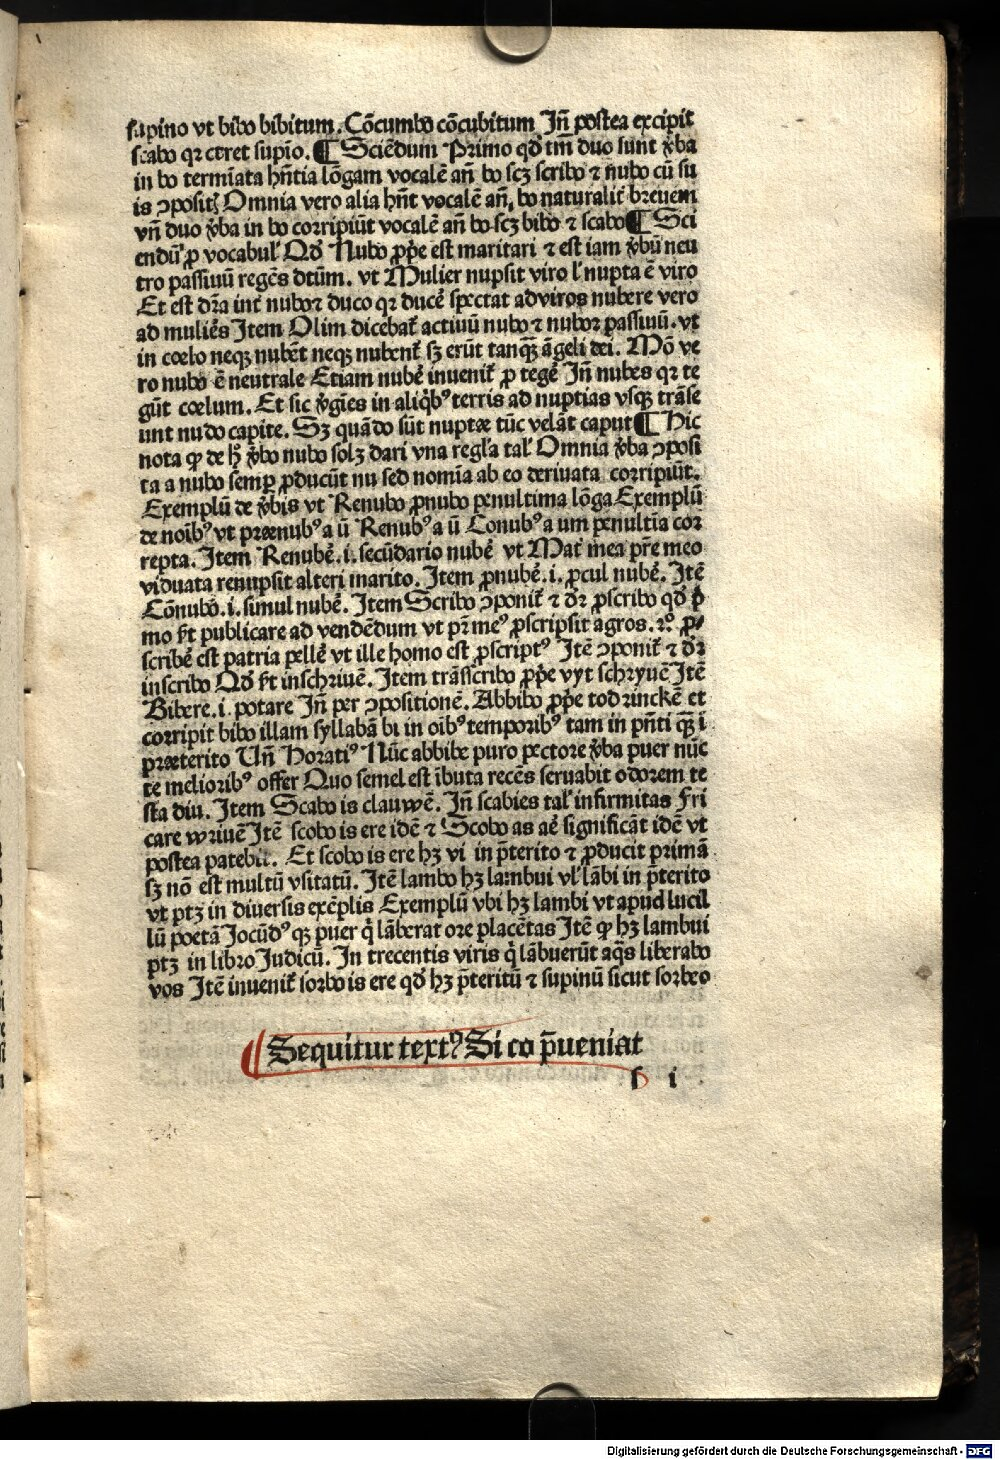 supino vt bibo bibitum. Cōcumbo cōcubitum Jn̄ postea excipit
scabo qr caret supīo. ¶ Sciēdum Primo qđ tm̄ duo sunt v̓ba
in bo termīata hn̄tia lōgam vocalē an̄ bo scꝫ scribo ⁊ nubo cū su
is ꝯposit Omnia vero alia hn̄t vocalē an̄, bo naturalit̓ breuem
vn̄ duo v̓ba in bo corripiūt vocalē an̄ bo scꝫ bibo ⁊ scabo ¶ Sci
endū ꝓ vocabul̓ Qđ Nubo ꝓp̓e est maritari ⁊ est iam v̓bū neu
tro passiuū regēs dtūm. vt Mulier nupsit viro l̓ nupta ē viro
Et est dr̄a int̓ nubo ⁊ duco qr ducē̓ spectat ad viros nubere vero
ad mulie̓s Jtem Olim dicebat̓ actiuū nubo ⁊ nubor passiuū. vt
in cœlo neqꝫ nubēt neqꝫ nubent̓ sꝫ erūt tanqꝫ̄ āgeli dei. Mō ve
ro nubo ē neutrale Etiam nube̓ inuenit̓ ꝓ tege̓ Jn̄ nubes qr te
gūt cœlum. Et sic v̓gīes in aliq̓bꝰ terris ad nuptias vsqꝫ trāse
unt nudo capite. Sꝫ quādo sūt nuptæ tūc velāt caput ¶ Hic
nota ꝙ de hͦ v̓bo nubo solꝫ dari vna regl̓a tal̓ Omnia v̓ba ꝯposi
ta a nubo semꝑ ꝓducūt nu sed nomīa ab eo deriuata corripiūt.
Exemplū de v̓bis vt Renubo ꝓnubo penultima lōga Exemplū
de noībꝰ vt prænubꝰ a ū Renubꝰ a ū Conubꝰ a um penultīa cor
repta. Jtem Renube̓. i. secūdario nube̓ vt Mat̓ mea pr̄e meo
viduata renupsit alteri marito. Jtem ꝓnube̓. i. ꝓcul nube̓. Jtē
Cōnubo. i. simul nube̓. Jtem Scribo ꝯponit̓ ⁊ dr̄ ꝓscribo qđ p̓
mo fit publicare ad vendēdum vt pr̄ meꝰ ꝓscripsit agros. 2ͦ ꝓ/
scribe̓ est patria pelle̓ vt ille homo est ꝓscriptꝰ Jtē ꝯponit̓ ⁊ dr̄
inscribo Qđ fit inschriuē. Jtem trāsscribo ꝓp̓e vyt schryuē Jtē
Bibere. i. potare Jn̄ per ꝯpositionē. Abbibo ꝓp̓e tod rinckē et
corripit bibo illam syllabā bi in oībꝰ temporibꝰ tam in pn̄ti qꝫ̄ ī
præterito Un̄ Horatiꝰ Nūc abbibe puro pectore v̓ba puer nūc
te melioribꝰ offer Quo semel est ībuta recēs seruabit odorem te
sta diu. Jtem Scabo is clauwē. Jn̄ scabies tal̓ infirmitas Fri
care wriuē Jtē scobo is ere idē ⁊ Scobo as ae̓ significāt idē vt
postea patebit. Et scobo is ere hꝫ vi in p̄terito ⁊ ꝓducit primā
sꝫ nō est multū vsitatū. Jtē lambo hꝫ lambui vl̓ lābi in p̄terito
vt ptꝫ in diuersis exēplis Exemplū vbi hꝫ lambi vt apud lucil
lū poetā Jocūdꝰ qꝫ puer q̓ lāberat ore placētas Jtē ꝙ hꝫ lambui
ptꝫ in libro Judicū. Jn trecentis viris q̓ lābuerūt aq̄s liberabo
vos Jtē inuenit̓ sorbo is ere qđ hꝫ p̄teritū ⁊ supinū sicut sorbeo
¶ Sequitur textꝰ Si co p̄ueniat
s i
Digitalisierung gefördert durch die Deutsche Forschungsgemeinschaft - DFG